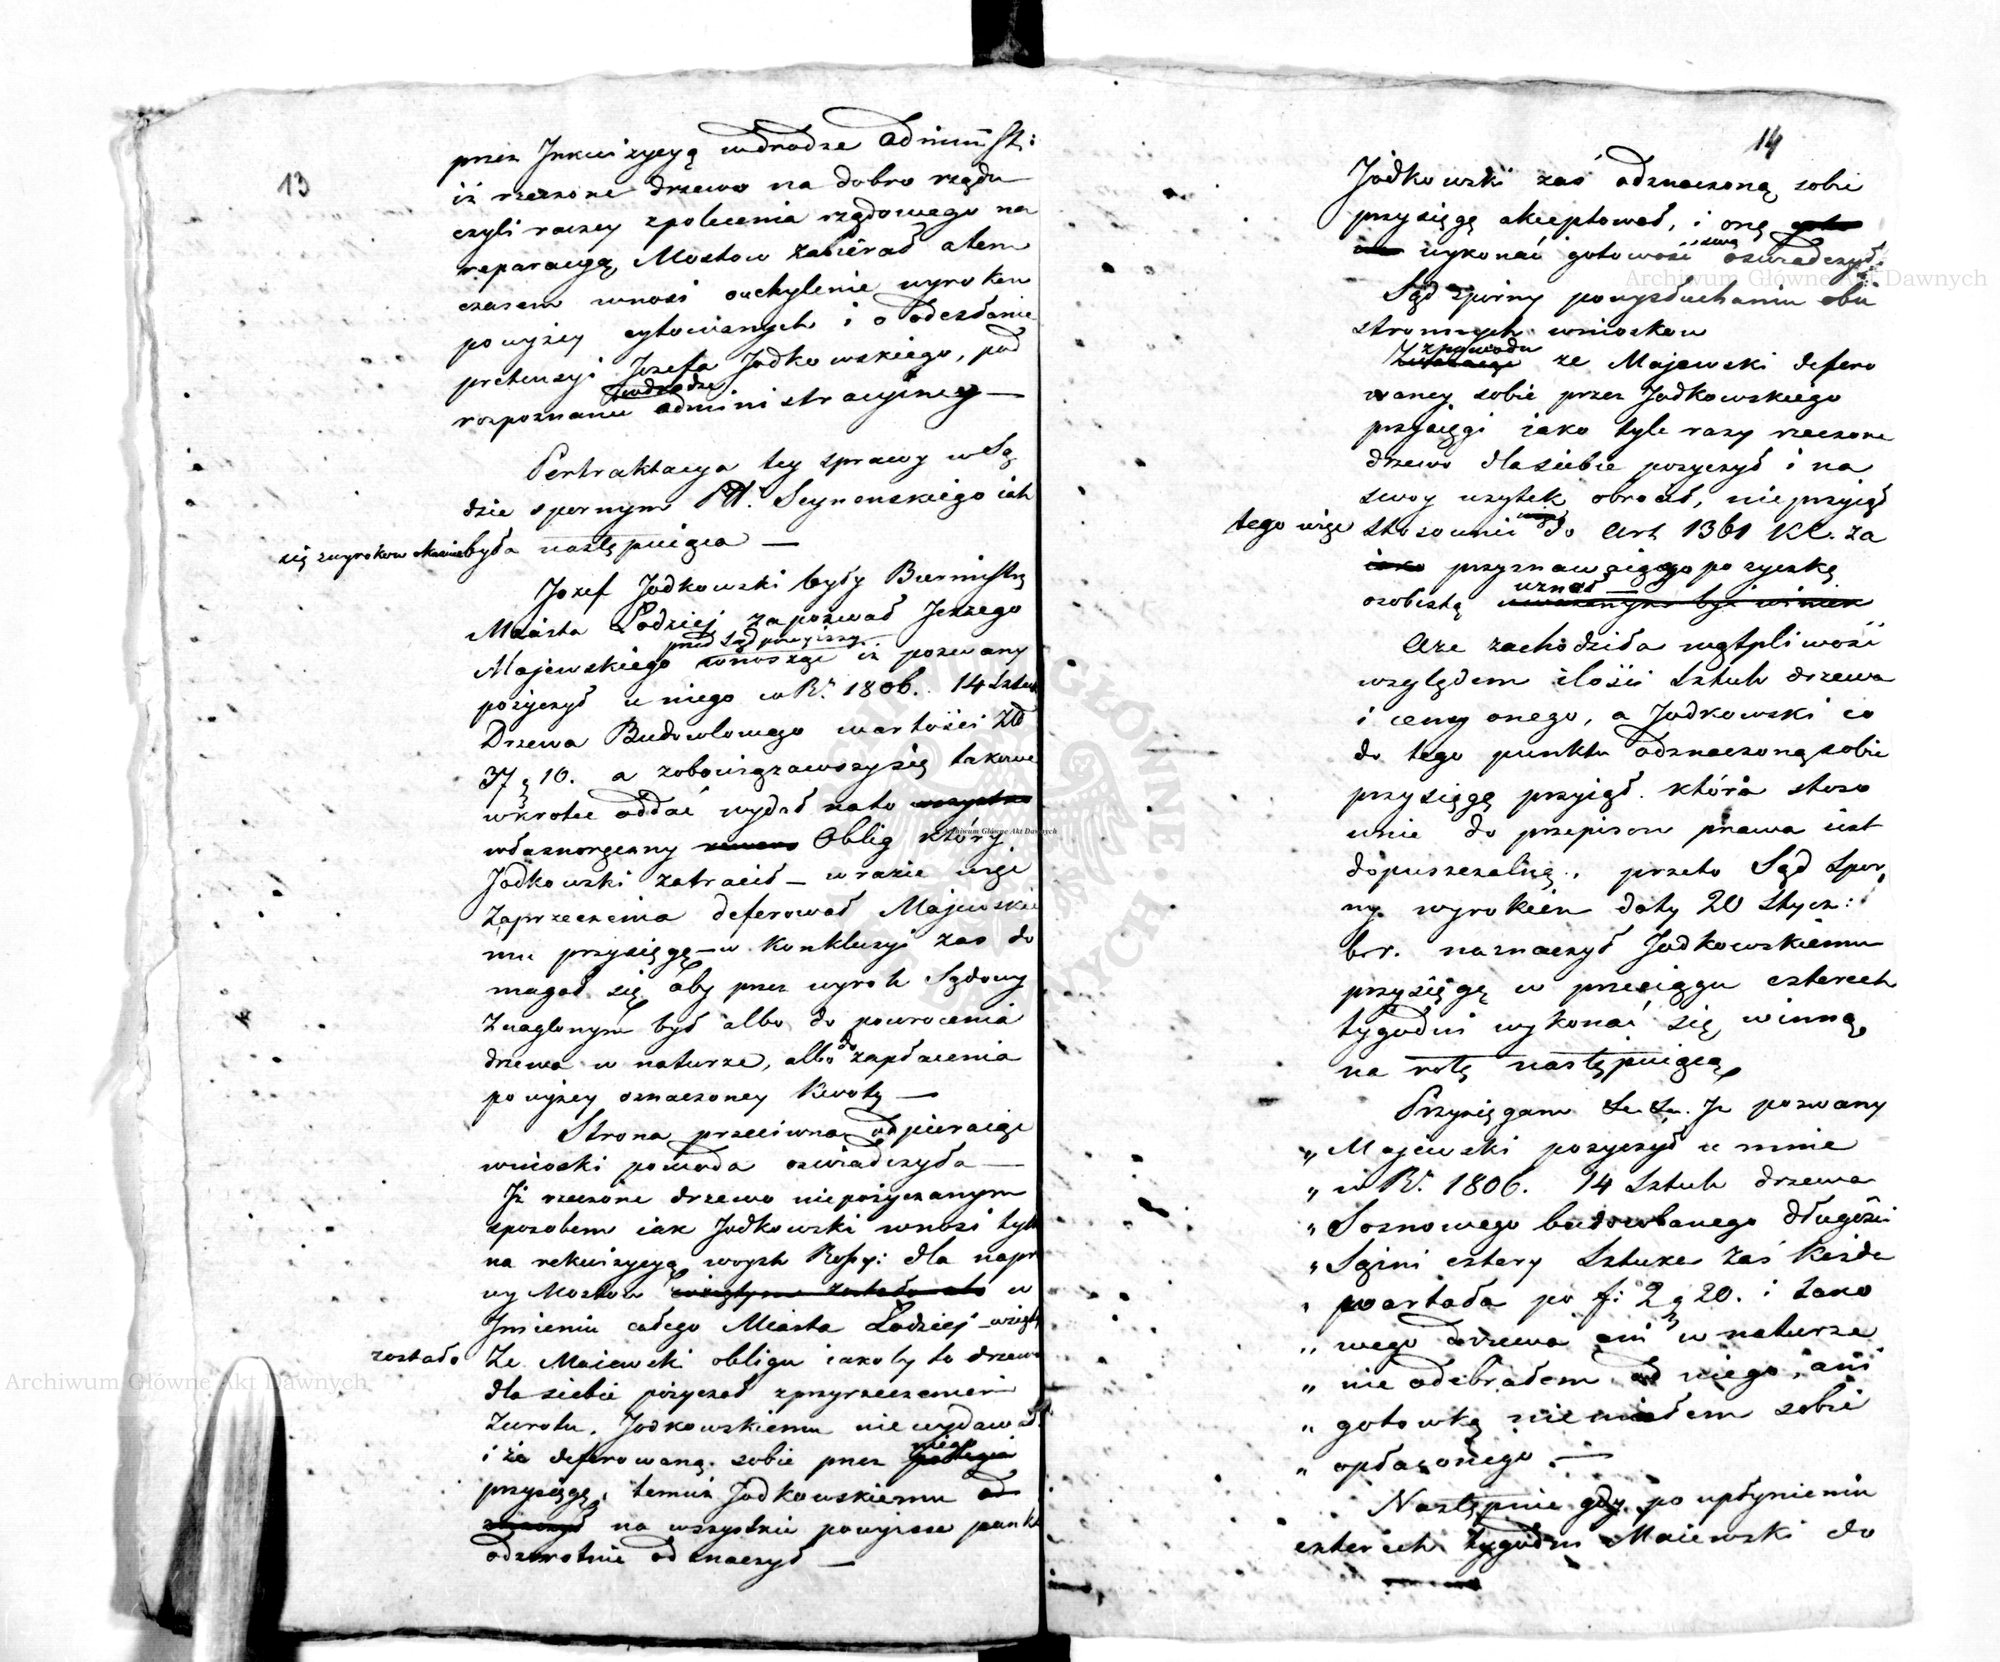 13
przez Inkwizycyą wdrodze Administ:
iż rzeczone drzewo na dobro rządu
czyli raczey zpolecenia rządowego na
reparacyą Mostow zabierał a tem
czasem wnosi ouchylenie wyrokow
powyżey cytowanych i o odesłanie
pretensyi Jozefa Jodkowskiego, pod
rozpoznanie wdrodze administracyiney —
Pertraktacya tey sprawy w Są
dzie spornym Ptt. Seynenskiego iak
się zwyrokow okazuie była następuiąca —
Jozef Jodkowski były Burmistrz
Miasta Łodziej zapozwał Jerzego
Majewskiego przed Sąd powyższy wnosząc iż pozwany
pożyczył u niego w R. 1806. 14 Sztuk
Drzewa Budowlowego wartości Zł
37 g 10. a zobowiązawszy się takowe
wkrotce oddać wydał na to
własnoręczny Oblig który
Jodkowski zatracił — w razie więc
Zaprzeczenia deferował Majewskie
mu przysięgę — w konkluzyi zas do
magał się aby przez wyrok Sądowy
Znaglonym był albo do powrocenia
drzewa w naturze, albo do zapłacenia
powyżey oznaczoney kwoty —
Strona przeciwna odpieraiąc
wnioski powoda oswiadczyła —
Iż rzeczone drzewo niepożyczanym
sposobem iak Jodkowski wnosi tylk
na rekwizycyą woysk Rossy: dla napr
wy Mostow w
Imieniu całego Miasta Łodziej wzięte
zostało Że Maiewski obligu iakoby to drzewo
dla siebie pożyczał zprzyrzeczeniem
Zwrotu, Jodkowskiemu niewydawał
i że deferowaną sobie przez niego
przysięgę, temuż Jodkowskiemu
na wszystkie powyższe punkt
odzwrotnie odznaczył —
14
Jodkowski zaś odznaczoną sobie
przysięgę akceptował, i onę
wykonać gotowość swą oswiadczył.
Sąd sporny powysłuchaniu obu
stronnych wniosków
Zpowodu ze Majewski defero
waney sobie przez Jodkowskiego
przysięgi iako tyle razy rzeczone
drzewo dla siebie pożyczył i na
swoy użytek obrocił, nie przyiął
tego więc stosownie do Art 1361 KC. za
przyznawaiącego pożyczkę
osobistą uznał —
A że zachodziła wątpliwość
względem ilości Sztuk drzewa
i ceny onego, a Jodkowski co
do tego punktu odznaczoną sobie
przysięgę przyiął. która stoso
wnie do przepisow prawa iest
dopuszczalną, przeto Sąd Spor
ny wyrokiem daty 20 Stycz:
b. r. naznaczył Jodkowskiemu
przysięgę w przeciągu czterech
tygodni wykonać się winną,
na rotę następuiącą
Przysięgam &c. &c. Iż pozwany
„ Majewski pożyczył u mnie
„ w R. 1806. 14 Sztuk drzewa
„ Sosnowego budowlanego długości
„ Sążni cztery Sztuka zaś każda
„ wartała po f: 2 g 20. i tako
„ wego drzewa ani w naturze
„ nie odebrałem od niego, ani
„ gotowką niemiałem sobie
„ opłaconego. —
Następnie gdy po upłynieniu
czterech tygodni Maiewski do